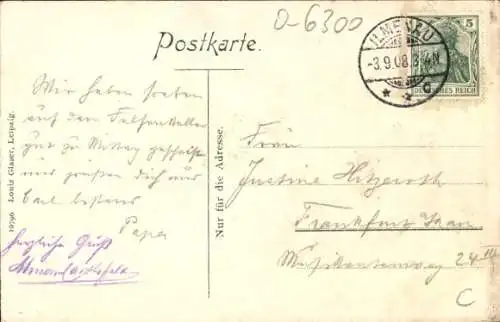 D-6300
Postkarte.
ILMENAU
-3.9.08.3-4N
* * c
5
DEUTSCHES REICH
Wir haben soeben
auf dem Felsenkeller
gut zu Mittag gespeist
und grüßen dich nur
bestens
Papa
herzliche Grüße
10796 Louis Glaser, Leipzig.
Nur für die Adresse.
Frau
Justine Hitzeroth
Frankfurt Main
Musikantenweg 24 III
C